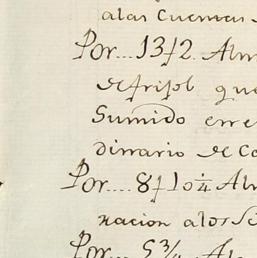 alas Cuentas
Por... 13f2. Alm
de frisol que
Sumido en e
dinario de Co
Por.... 8f10¼ Alm
nacion a los S
Por... 5¾ Alm